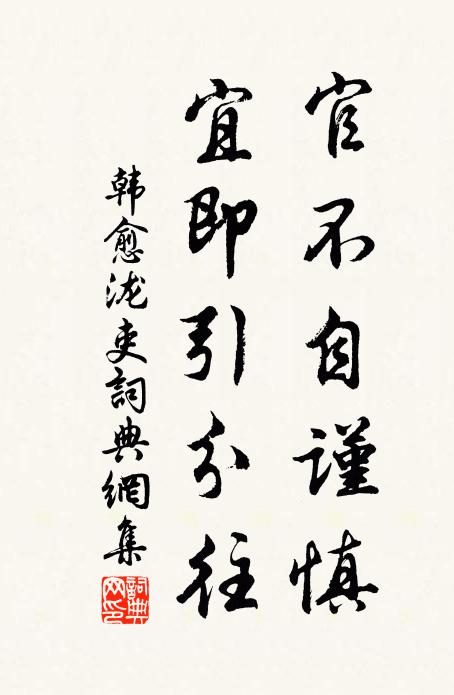 官不自謹慎
宜即引分往
韩愈泷吏詞典網集
詞典网印